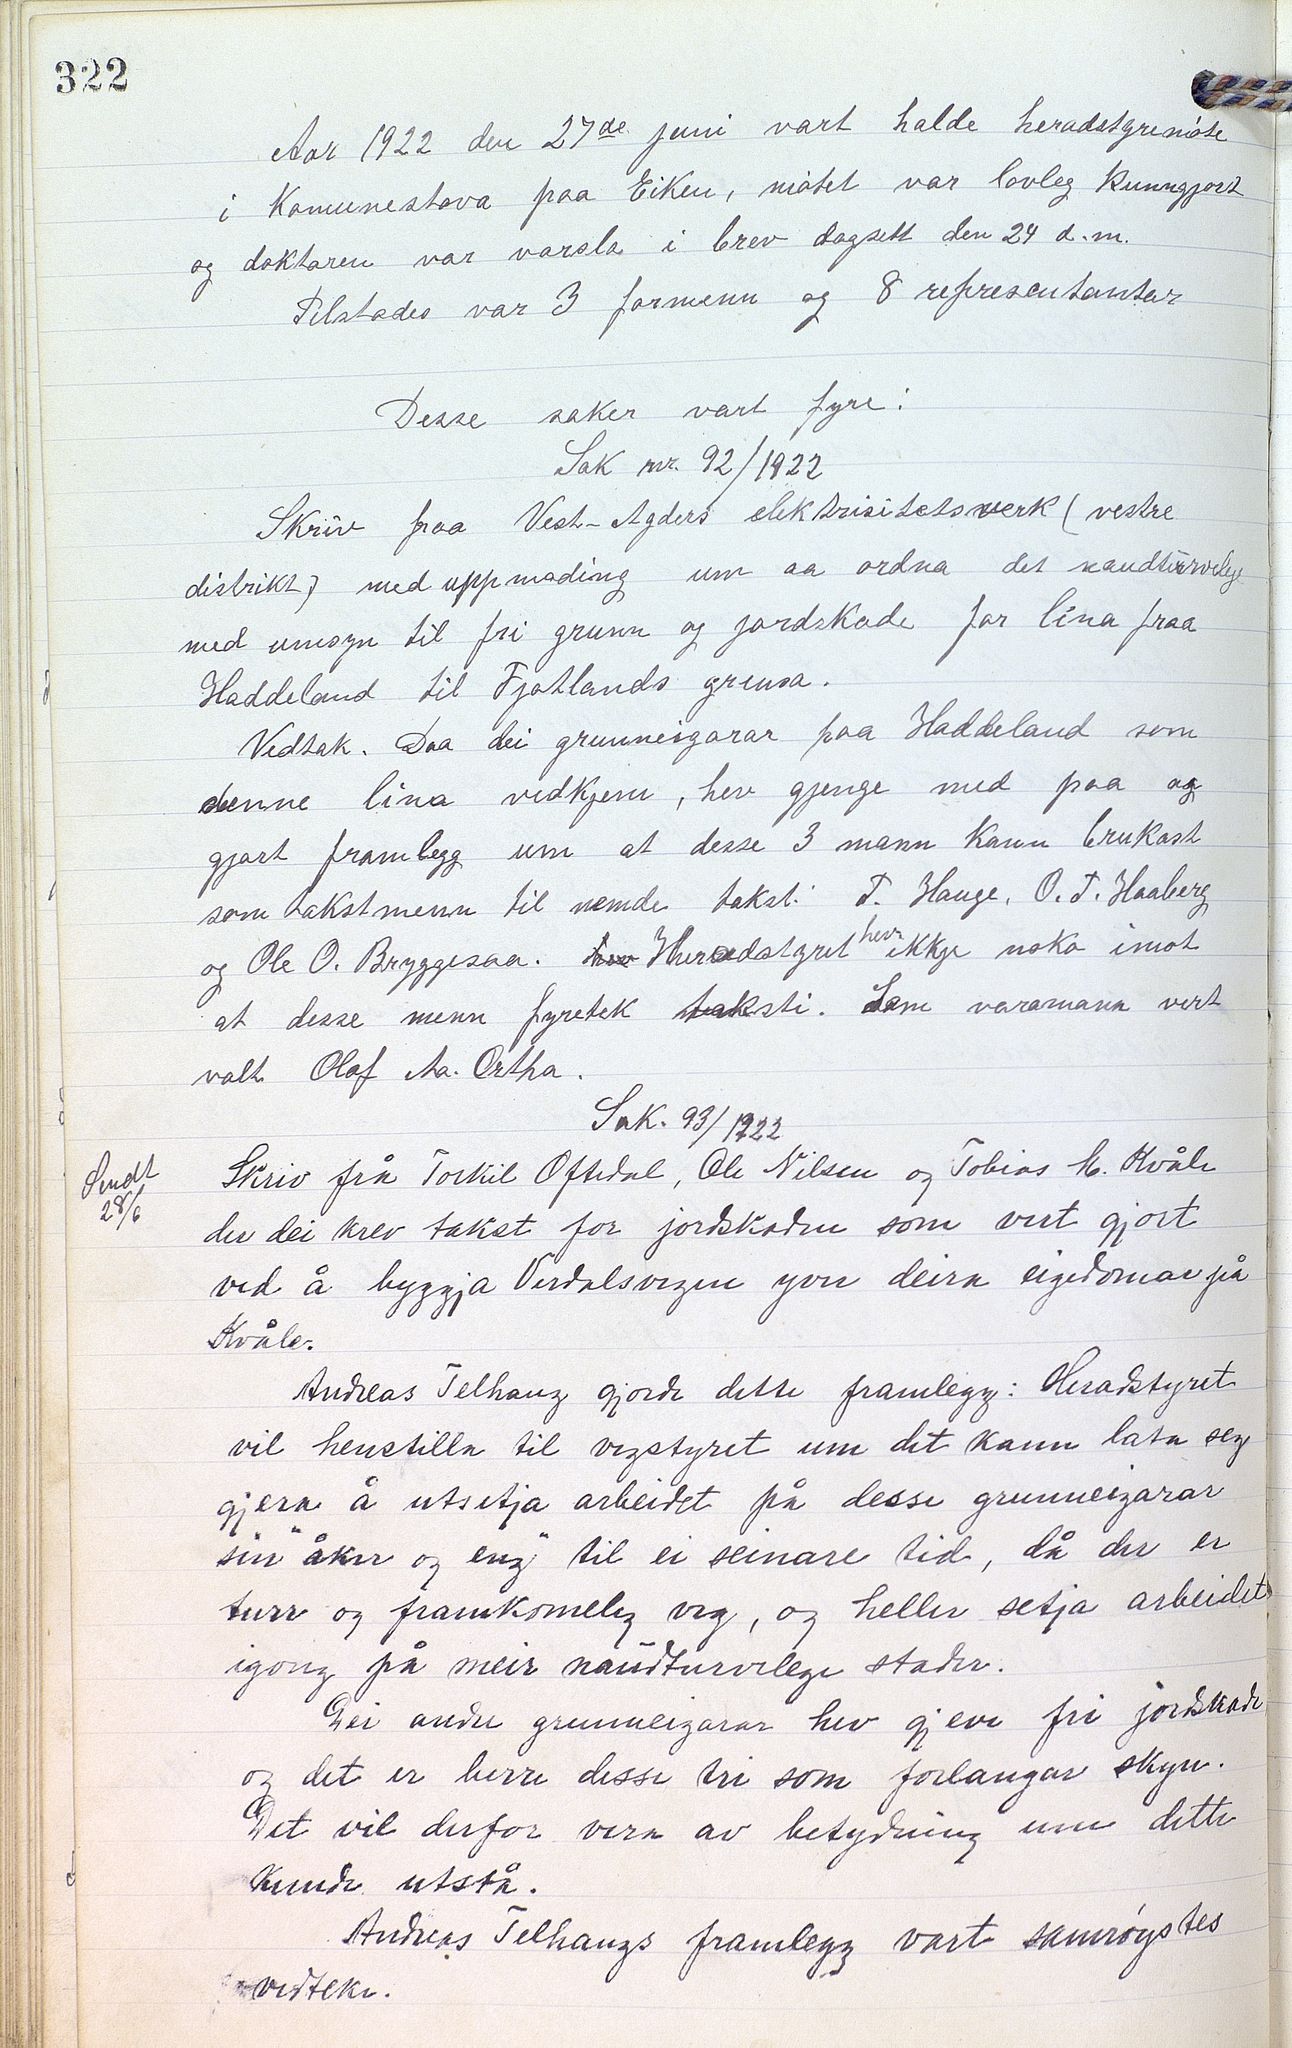 322
Aar 1922 den 27de juni vart halde heradstyremöte
i Komunestova paa Eiken, mötet var lovleg kunngjort
og doktaren var varsla i brev dagsett den 24 d.m.
Tilstades var 3 formenn og 8 representantar
Desse saker vart fyre:
Sak nr. 92/1922
Skriv fraa Vest-Agders elektrisitetsverk (vestre
distrikt) med uppmoding um aa ordna det naudturvelege
med umsyn til fri grunn og jordskade for lina fraa
Haddeland til Fjotlands grensa.
Vedtak. Daa dei grunneigarar paa Haddeland som
denne lina vedkjem, hev gjenge med paa og
gjort framlegg um at desse 3 mann kann brukast
som takstmenn til nemde takst: T. Hauge, O. T. Haaberg
og Ole O. Bryggesaa. Heradstyret hev ikkje noko imot
at desse menn fyretek taksti. Som varamann vert
valt Olaf Aa. Ertha.
Sak. 93/1922
Sendt
28/6
Skriv frå Torkil Oftedal, Ole Nilsen og Tobias M. Kvåle
der dei krev takst for jordskaden som vert gjort
ved å byggja Verdalsvegen yver deira eigedomar på
Kvåle.
Andreas Telhaug gjorde dette framlegg: Heradstyret
vil henstilla til vegstyret um det kann lata seg
gjera å utsetja arbeidet på desse grunneigarar
sin "åker og eng" til ei seinare tid, då der er
turr og framkomeleg veg, og heller setja arbeidet
igong på meir naudturvelege stader.
Dei andre grunneigarar hev gjeve fri jordskade
og det er berre desse tri som forlangar skyn.
Det vil derfor vera av betydning um dette
kunde utstå.
Andreas Telhaugs framlegg vart samröystes
vedteke.